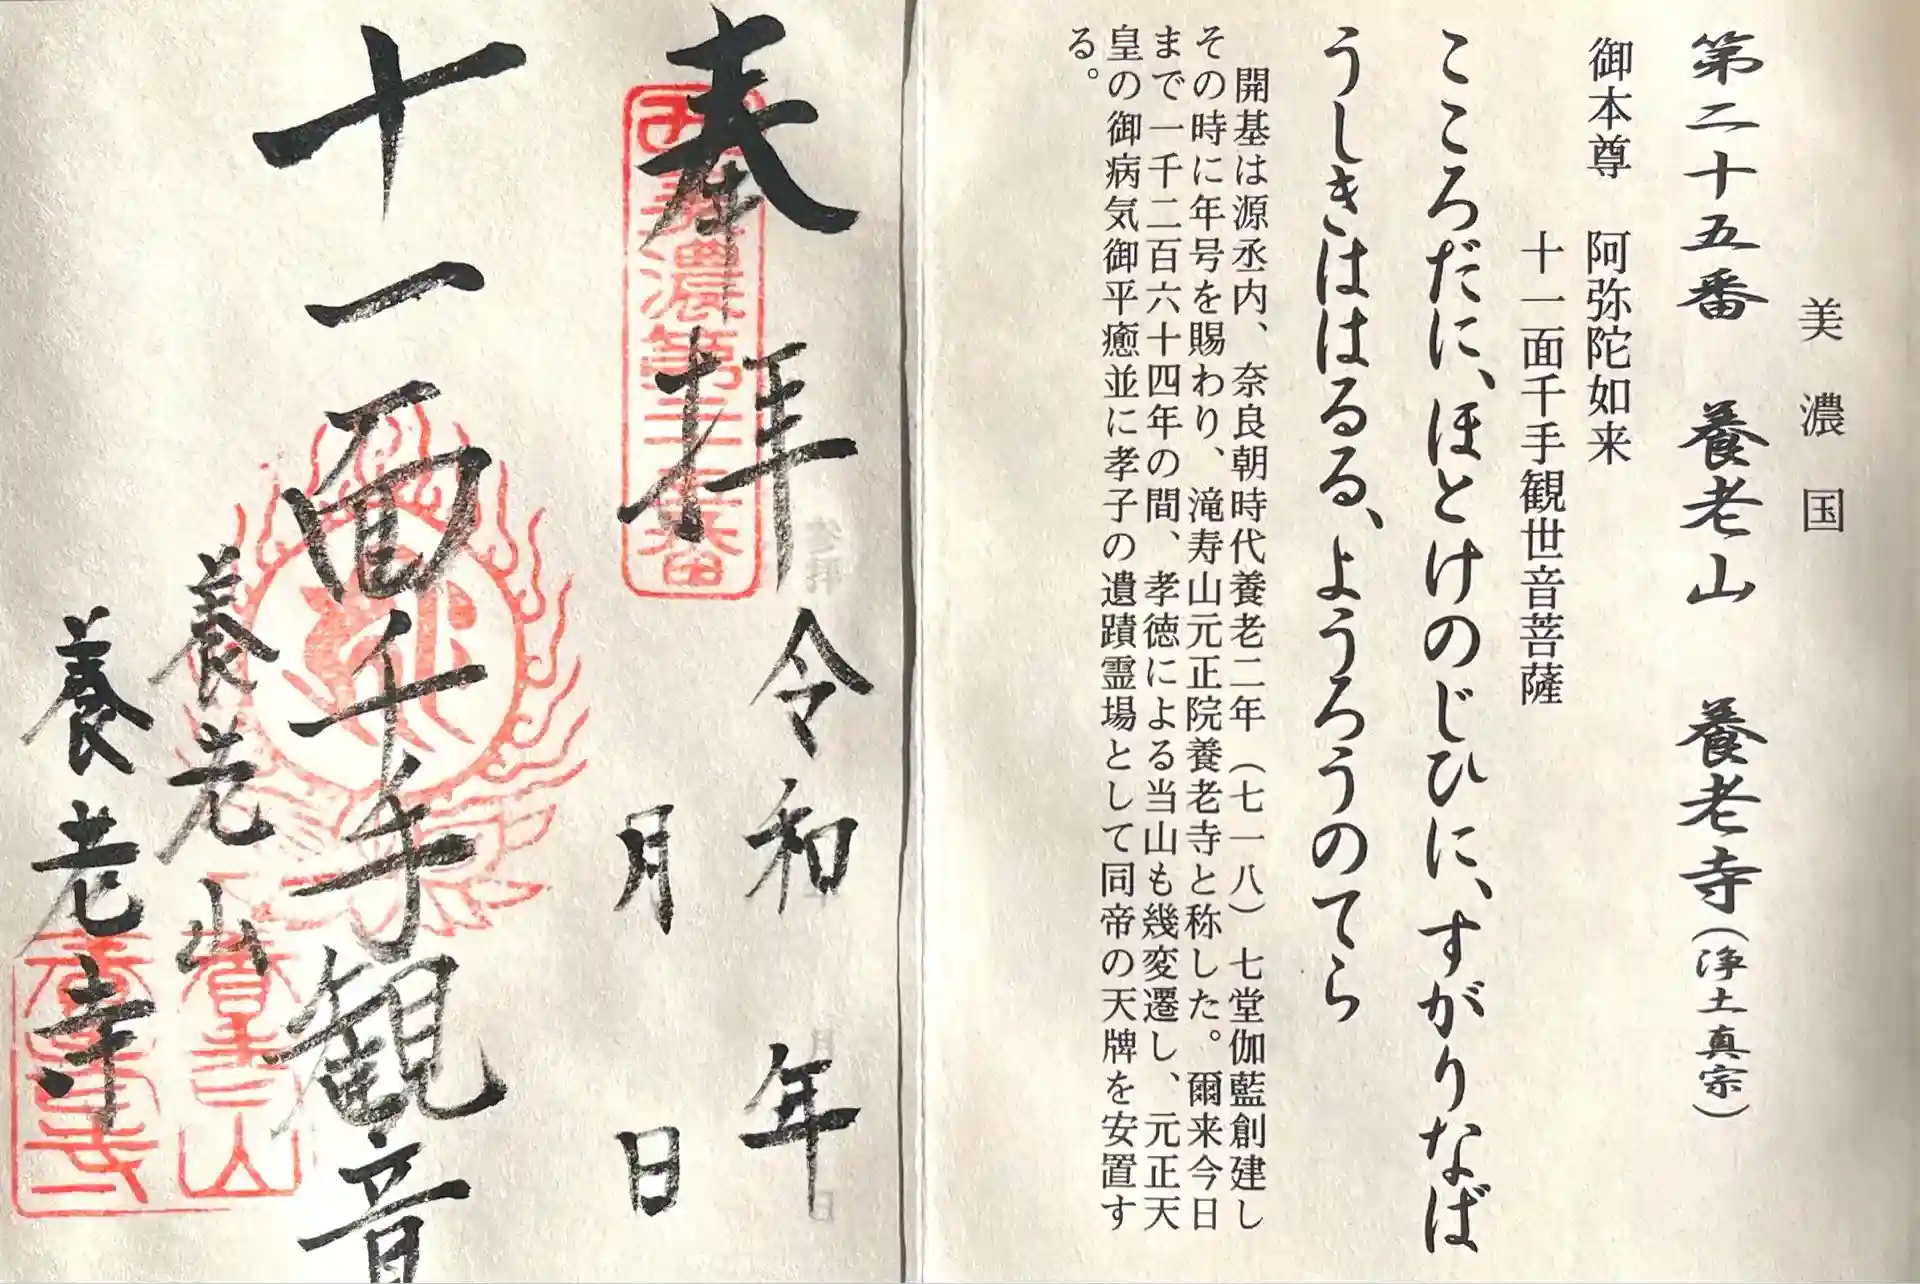 美濃国
第二十五番 養老山 養老寺(浄土真宗)
御本尊 阿弥陀如来
十一面千手観世音菩薩
こころだに、ほとけのじひに、すがりなば
うしきははるる、ようろうのてら
開基は源丞内、奈良朝時代養老二年(七一八)七堂伽藍創建し
その時に年号を賜わり、滝寿山元正院養老寺と称した。爾来今日
まで一千二百六十四年の間、孝徳による当山も幾変遷し、元正天
皇の御病気御平癒並に孝子の遺蹟霊場として同帝の天牌を安置す
る。
奉拝
令和 年
月 日
十一面千手観音
養老山
養老寺
西美濃第二十五番
養老山
養老寺